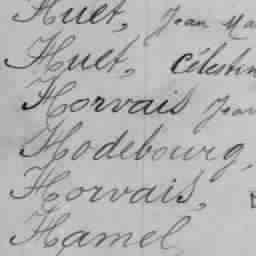 Huet, Jean Ma
Huet, Célestin
Horvais Jean
Hodebourg,
Horvais,
Hamel